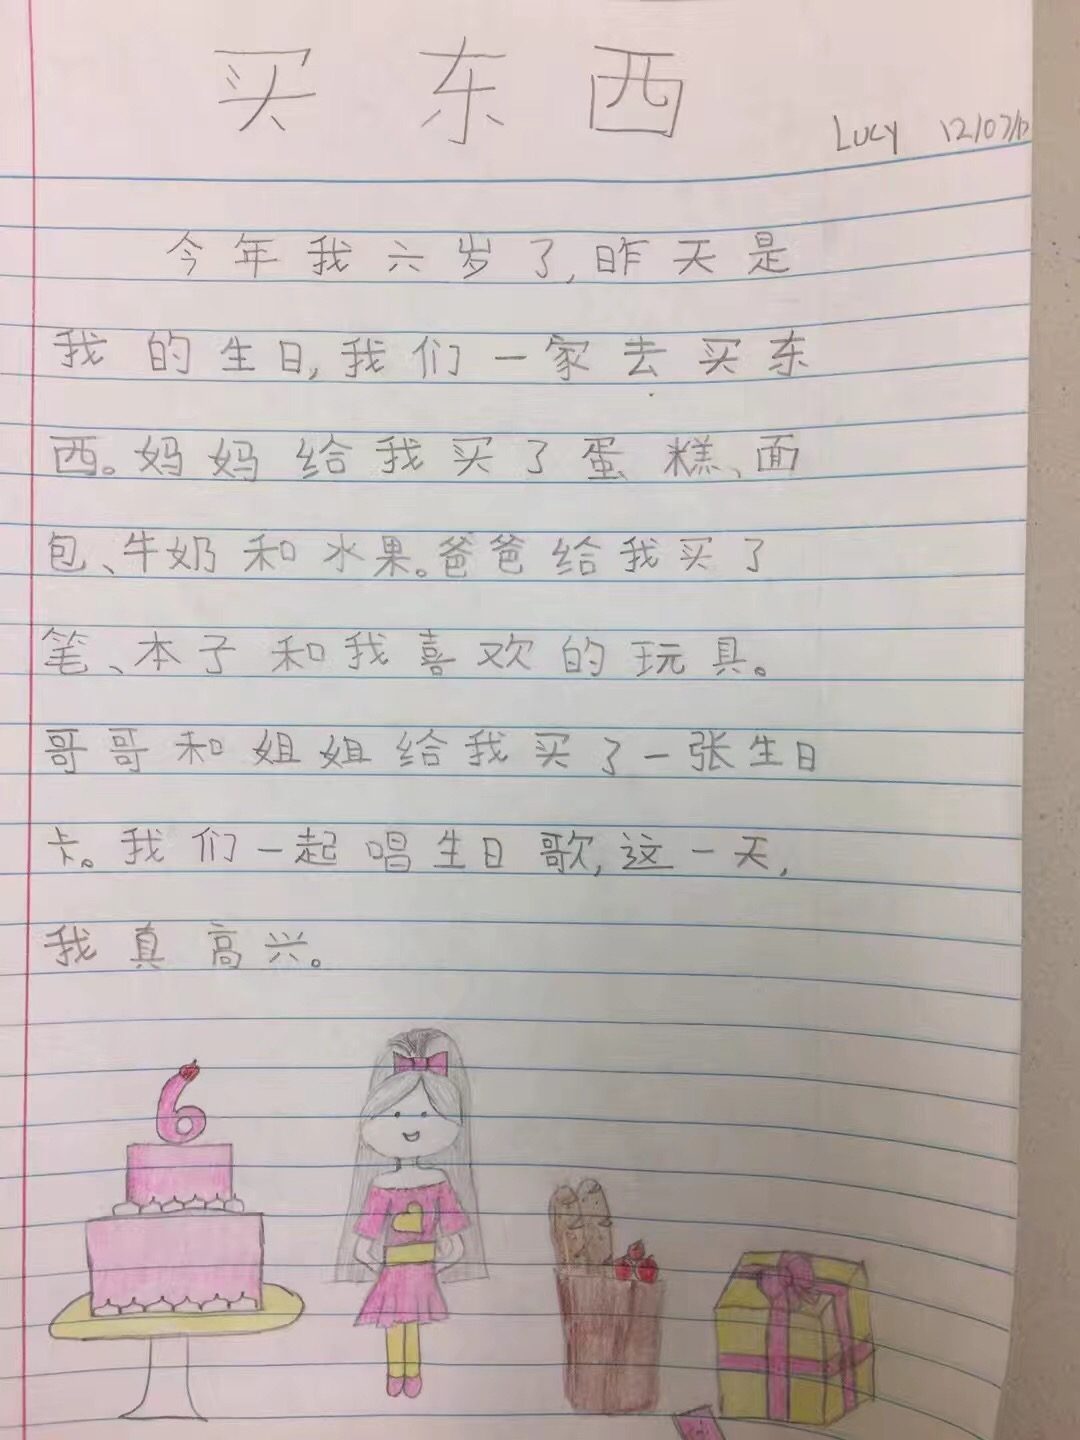 买东西
Lucy 12/07/17
今年我六岁了,昨天是
我的生日,我们一家去买东
西。妈妈给我买了蛋糕、面
包、牛奶和水果。爸爸给我买了
笔、本子和我喜欢的玩具。
哥哥和姐姐给我买了一张生日
卡。我们一起唱生日歌,这一天,
我真高兴。
6